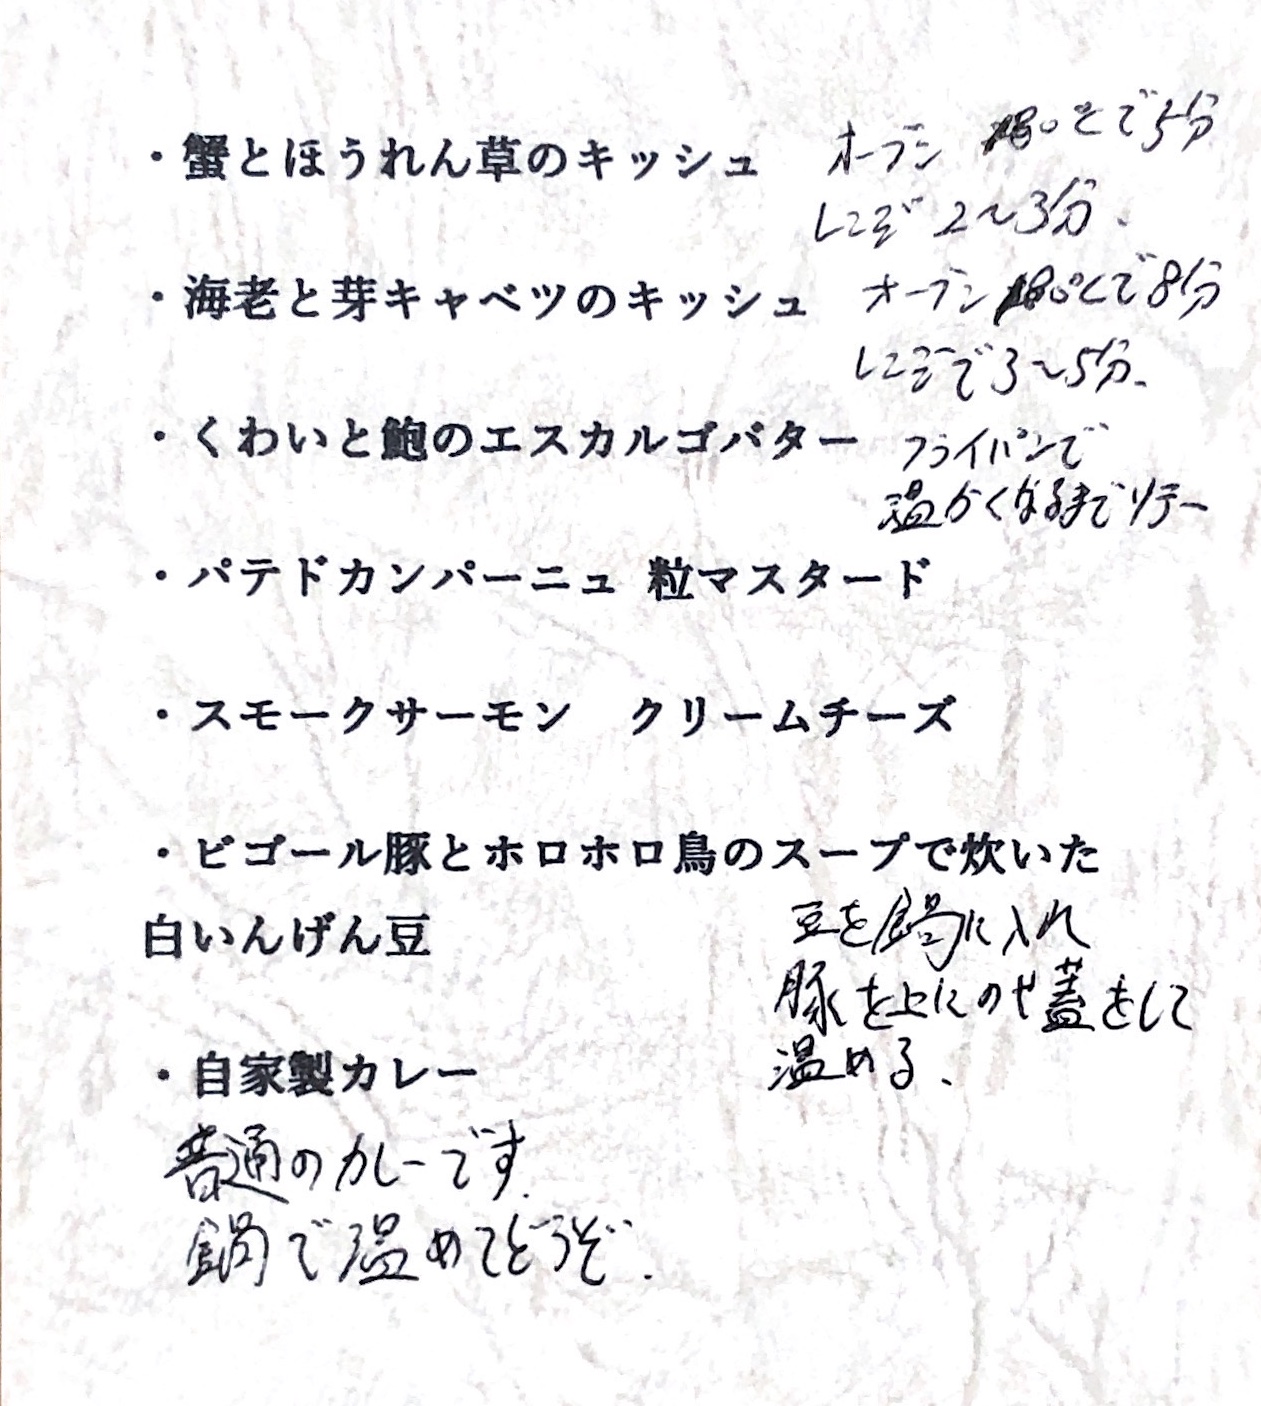 ・蟹とほうれん草のキッシュ オーブン 180℃で5分
レンジ 2〜3分.
・海老と芽キャベツのキッシュ オーブン 180℃で8分
レンジで3〜5分.
・くわいと鮑のエスカルゴバター フライパンで
温かくなるまでソテー
・パテドカンパーニュ 粒マスタード
・スモークサーモン　クリームチーズ
・ビゴール豚とホロホロ鳥のスープで炊いた
白いんげん豆 豆を鍋に入れ
豚を上にのせ蓋をして
温める.
・自家製カレー
普通のカレーです.
鍋で温めてどうぞ.